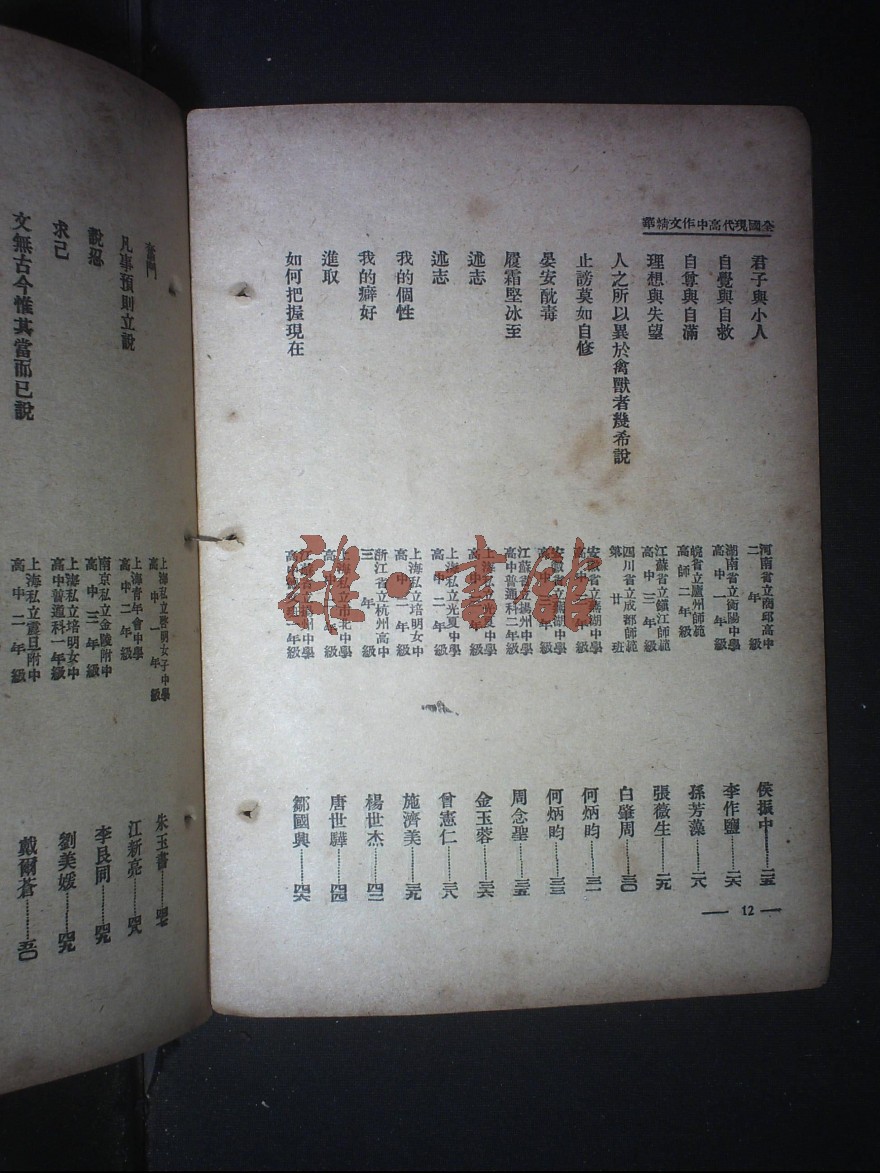 全國現代高中作文精華
君子與小人
河南省立商邱高中
二年級
侯振中………二五
自覺與自救
湖南省立衡陽中學
高中一年級
李作鹽………二六
自尊與自滿
皖省立廬州師範
高師二年級
孫芳藻………二八
理想與失望
江蘇省立鎮江師範
高中三年級
張薇生………二九
人之所以異於禽獸者幾希說
四川省立成都師範
第廿班
白肇周………三〇
止謗莫如自修
安徽省立蕪湖中學
高中年級
何炳昀………三二
晏安酖毒
安徽省立蕪湖中學
高中年級
何炳昀………三三
履霜堅冰至
江蘇省立揚州中學
高中普通科二年級
周念聖………三五
述志
上海私立光夏中學
高中二年級
金玉蓉………三六
述志
上海私立光夏中學
高中二年級
曾憲仁………三八
我的個性
上海私立培明女中
高中一年級
施濟美………三九
我的癖好
浙江省立杭州高中
三年級
楊世杰………四二
進取
上海私立市北中學
高中年級
唐世驊………四四
如何把握現在
江蘇省立揚州中學
高中年級
鄒國興………四六
— 12 —
奮鬥
上海私立啓明女子中學
高中一年級
朱玉書………四七
凡事預則立說
上海青年會中學
高中二年級
江新亮………四八
說忍
南京私立金陵附中
高中三年級
李良同………四九
求己
上海私立培明女中
高中普通科一年級
劉美媛………四九
文無古今惟其當而已說
上海私立震旦附中
高中二年級
戴爾蒼………五〇
雅·書館